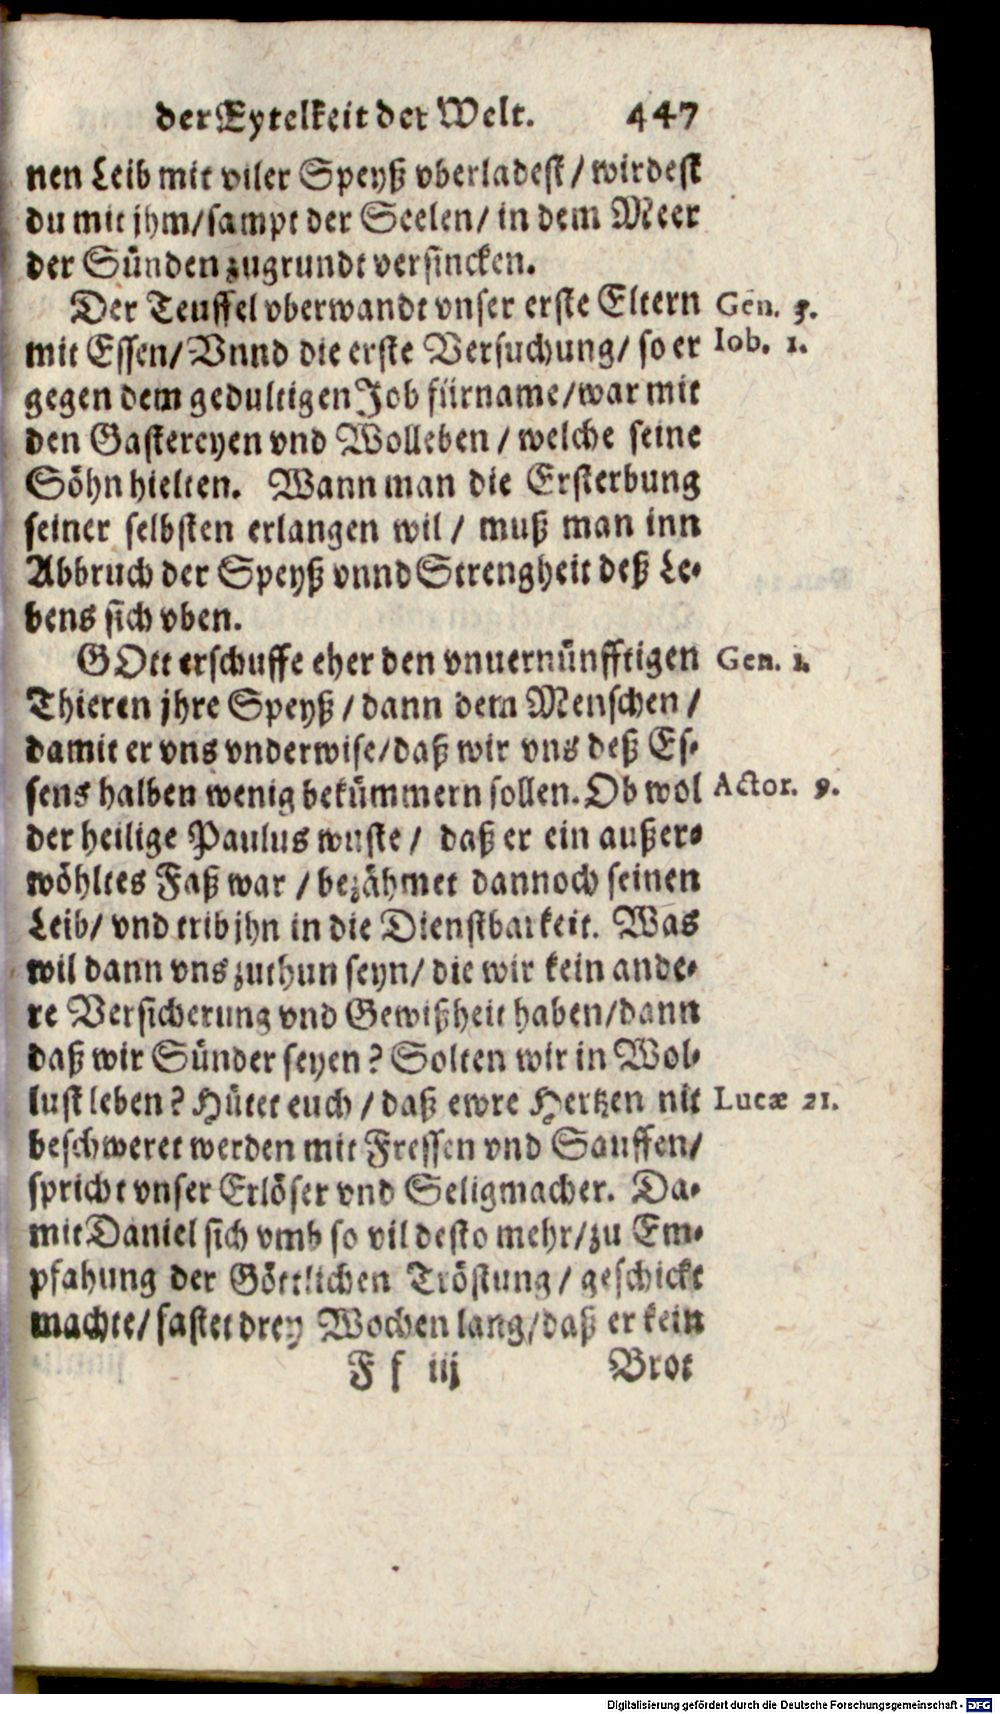 der Eytelkeit der Welt. 447
nen Leib mit viler Speyß vberladest / wirdest
du mit jhm/sampt der Seelen/ in dem Meer
der Sünden zugrundt versincken.
Der Teuffel vberwandt vnser erste Eltern Gen. 3.
mit Essen/ Vnnd die erste Versuchung/ so er Iob. 1.
gegen dem gedultigen Job fürname/war mit
den Gastereyen vnd Wolleben / welche seine
Söhn hielten. Wann man die Ersterbung
seiner selbsten erlangen wil / muß man inn
Abbruch der Speyß vnnd Strengheit deß Le-
bens sich vben.
GOtt erschuffe eher den vnuernünfftigen Gen. 1.
Thieren jhre Speyß / dann dem Menschen /
damit er vns vnderwise/daß wir vns deß Es-
sens halben wenig bekümmern sollen. Ob wol Actor. 9.
der heilige Paulus wuste / daß er ein außer-
wöhltes Faß war / bezähmet dannoch seinen
Leib/ vnd trib jhn in die Dienstbarkeit. Was
wil dann vns zuthun seyn/ die wir kein ande-
re Versicherung vnd Gewißheit haben/dann
daß wir Sünder seyen? Solten wir in Wol-
lust leben? Hütet euch / daß ewre Hertzen nit Lucæ 21.
beschweret werden mit Fressen vnd Sauffen/
spricht vnser Erlöser vnd Seligmacher. Da-
mit Daniel sich vmb so vil desto mehr/zu Em-
pfahung der Göttlichen Tröstung/ geschickt
machte/ fastet drey Wochen lang/daß er kein
F f iij Brot
Digitalisierung gefördert durch die Deutsche Forschungsgemeinschaft - DFG